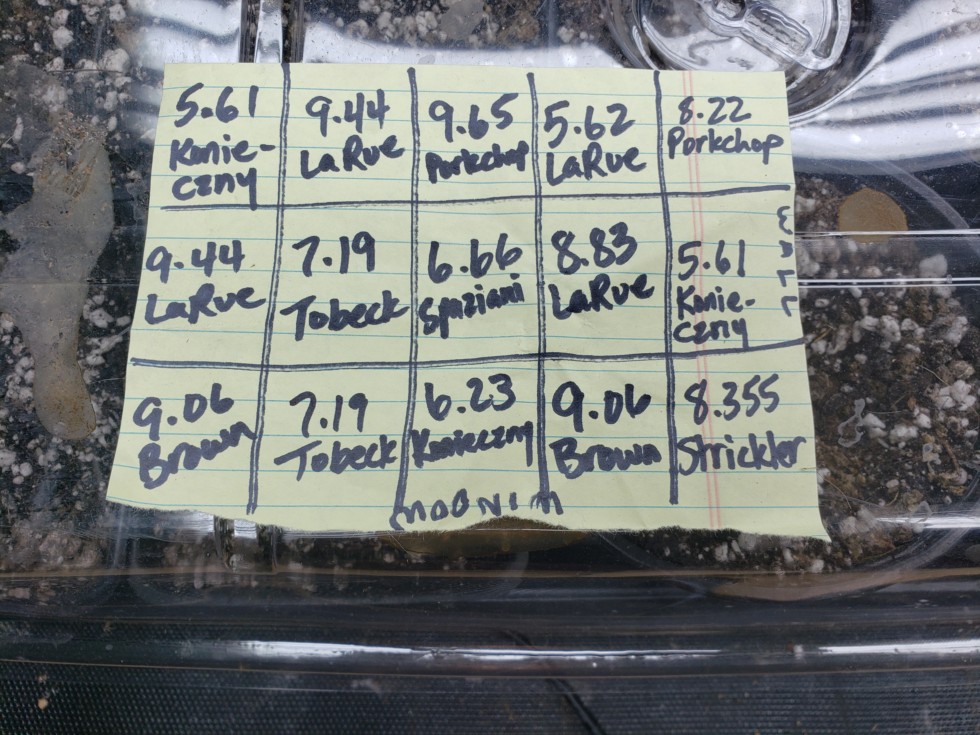 5.61
Konie-
czny
9.44
LaRue
9.65
Porkchop
5.62
LaRue
8.22
Porkchop
9.44
LaRue
7.19
Tobeck
6.66
Spaziani
8.83
LaRue
5.61
Konie-
czny
WALL
9.06
Brown
7.19
Tobeck
6.23
Konieczny
9.06
Brown
8.355
Strickler
WINDOW